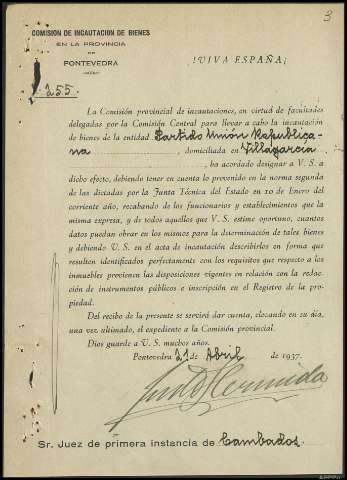 3
COMISION DE INCAUTACION DE BIENES
EN LA PROVINCIA
DE
PONTEVEDRA
¡VIVA ESPAÑA!
255.
La Comisión provincial de incautaciones, en virtud de facultades
delegadas por la Comisión Central para llevar a cabo la incautación
de bienes de la entidad Partido Unión Republica-
na domiciliada en Villagarcía
, ha acordado designar a V. S. a
dicho efecto, debiendo tener en cuenta lo prevenido en la norma segunda
de las dictadas por la Junta Técnica del Estado en 10 de Enero del
corriente año, recabando de los funcionarios y establecimientos que la
misma expresa, y de todos aquellos que V. S. estime oportuno, cuantos
datos puedan obrar en los mismos para la determinación de tales bienes
y debiendo U. S. en el acta de incautación describirlos en forma que
resulten identificados perfectamente con los requisitos que respecto a los
inmuebles previenen las disposiciones vigentes en relación con la redac-
ción de instrumentos públicos e inscripción en el Registro de la pro-
piedad.
Del recibo de la presente se servirá dar cuenta, elevando en su día,
una vez ultimado, el expediente a la Comisión provincial.
Dios guarde a U. S. muchos años.
Pontevedra 21 de Abril de 1937.
Sr. Juez de primera instancia de Cambados.